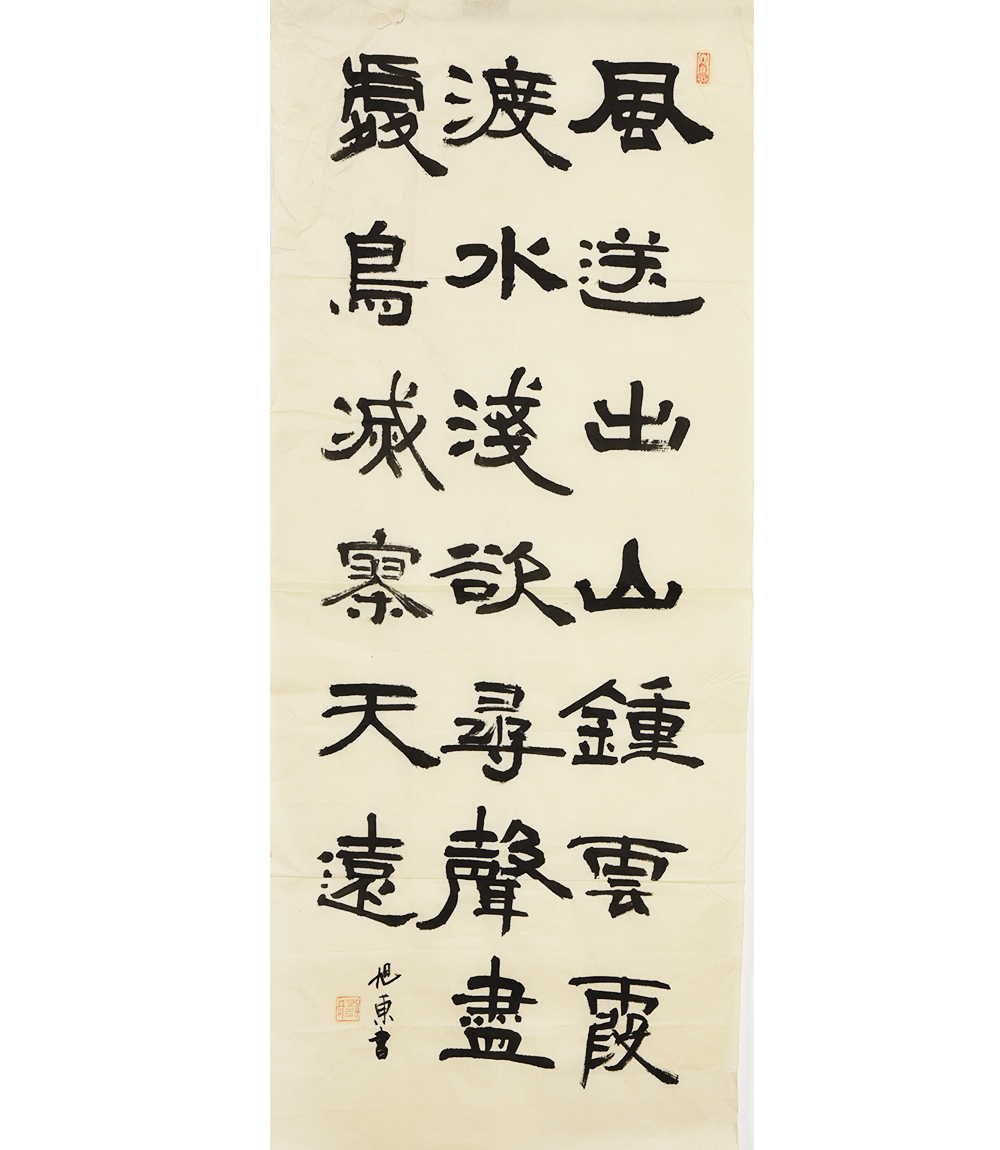 風送出山鍾雲霞
渡水淺欲尋聲盡
處鳥滅寥天遠
旭東書